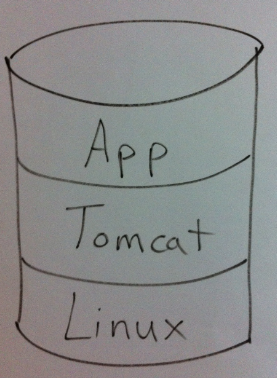 App
Tomcat
Linux